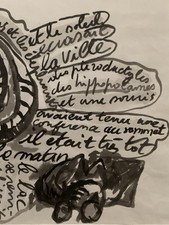 et le soleil
écrasait
la ville
des ptérodactyles
des hippopotames
et une souris
avaient tenu une
conférence au sommet
il était très tôt
le matin
le lac